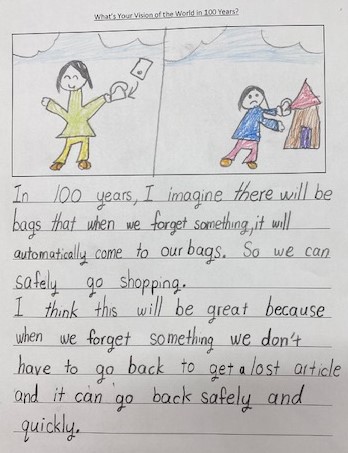 What's Your Vision of the World in 100 Years?
In 100 years, I imagine there will be
bags that when we forget something, it will
automatically come to our bags. So we can
safely go shopping.
I think this will be great because
when we forget something we don't
have to go back to get a lost article
and it can go back safely and
quickly.